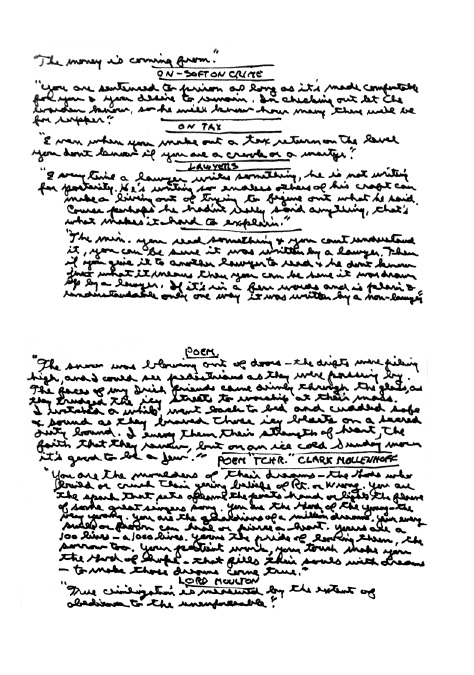 "The money is coming from."
ON-SOFT ON CRIME
"You are sentenced to prison as long as it's made comfortable
for you & you desire to remain. In checking out let the
warden know, so he will know how many there will be
for supper."
ON TAX
"Even when you make out a tax return on the level
you don't know if you are a crook or a martyr."
LAWYERS
"Every time a lawyer writes something, he is not writing
for posterity. He's writing so endless others of his craft can
make a living out of trying to figure out what he said.
Course perhaps he hadn't really said anything, that's
what makes it hard to explain."
"The min. you read something & you can't understand
it, you can be sure it was written by a lawyer. Then
if you give it to another lawyer to read & he don't know
just what it means then you can be sure it was drawn
up by a lawyer. If it's in a few words and is plain &
understandable only one way it was written by a non-lawyer"
POEM
"The snow was blowing out of doors - the drifts were piling
high, and I could see pedestrians as they were passing by.
The faces of my Irish friends came dimly through the glass, as
they trudged the icy streets to worship at their mass.
I watched a while went back to bed and cuddled safe
& sound as they braved those icy blasts on a sacred
duty bound. I envy them their strength of heart, the
faith that they, but on an ice cold Sunday morn
it's good to be a Jew."
POEM "TCHR." CLARK MOLLENHOFF
"You are the moulders of their dreams - the Gods who
build or crush their young beliefs of Rt. or Wrong. You are
the spark that sets aflame the poets hand or lights the flame
of some great singers song. You are the Gods of the young - the
very young. You are the guardians of a million dreams. Your every
smile or frown can heal or pierce a heart. Yours are a
100 lives - a 1000 lives. Yours the pride of loving them, the
sorrow too. Your patient work, your touch make you
the God of hope - that fills their souls with dreams
- to make those dreams come true."
LORD MOULTON
"True civilization is measured by the extent of
obedience to the unenforceable".